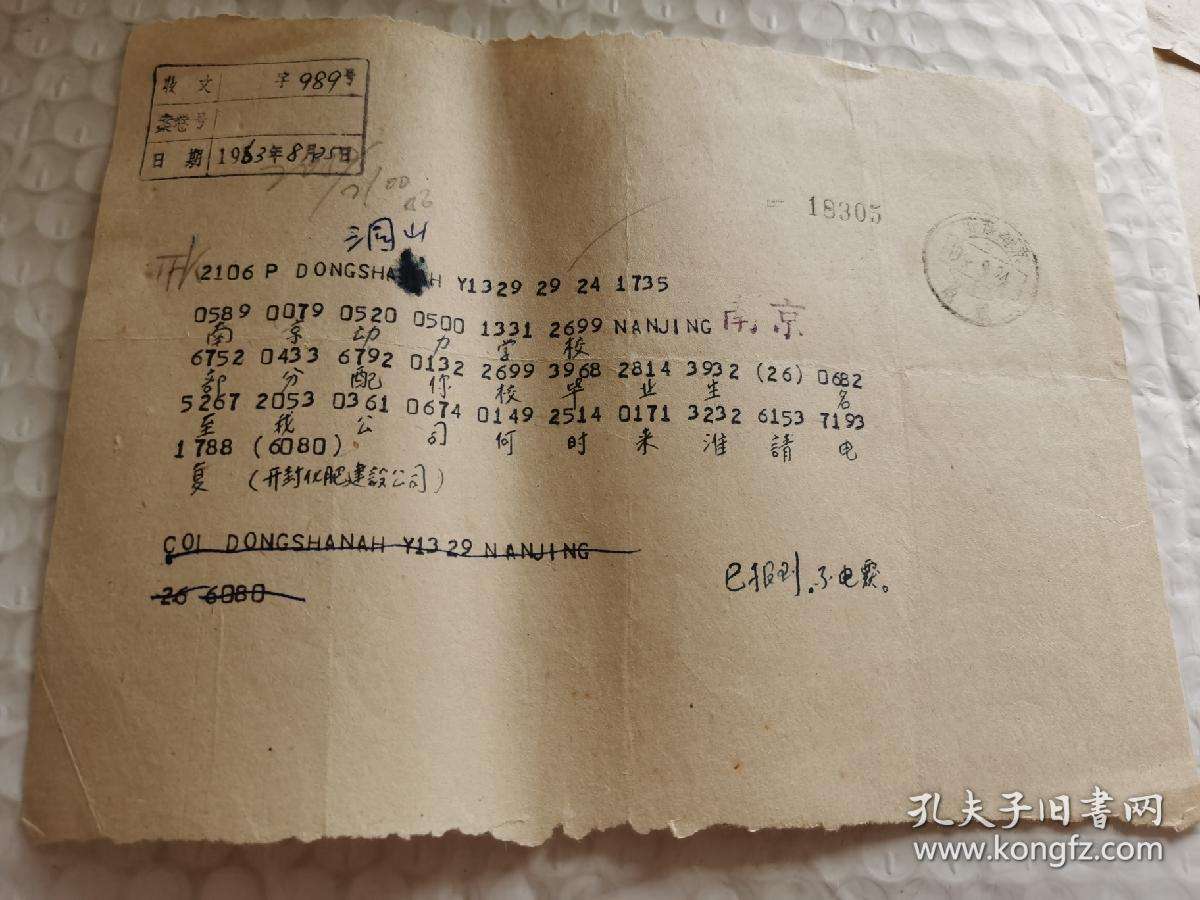 收文 字 989号
案卷号
日期 1963年8月25日
18305
洞山
2106 P DONGSHA H Y1329 29 24 1735
0589 0079 0520 0500 1331 2699 NANJING 南京
南 京 动 力 学 校
6752 0433 6792 0132 2699 3968 2814 3932 (26) 0682
部 分 配 你 校 毕 业 生 名
5267 2053 0361 0674 0149 2514 0171 3232 6153 7193
至 我 公 司 何 时 来 淮 請 电
1788 (6080)
复 (开封化肥建設公司)
COI DONGSHANAH Y1329 NANJING
26 6080
已报到.不电覆。
孔夫子旧書网
www.kongfz.com